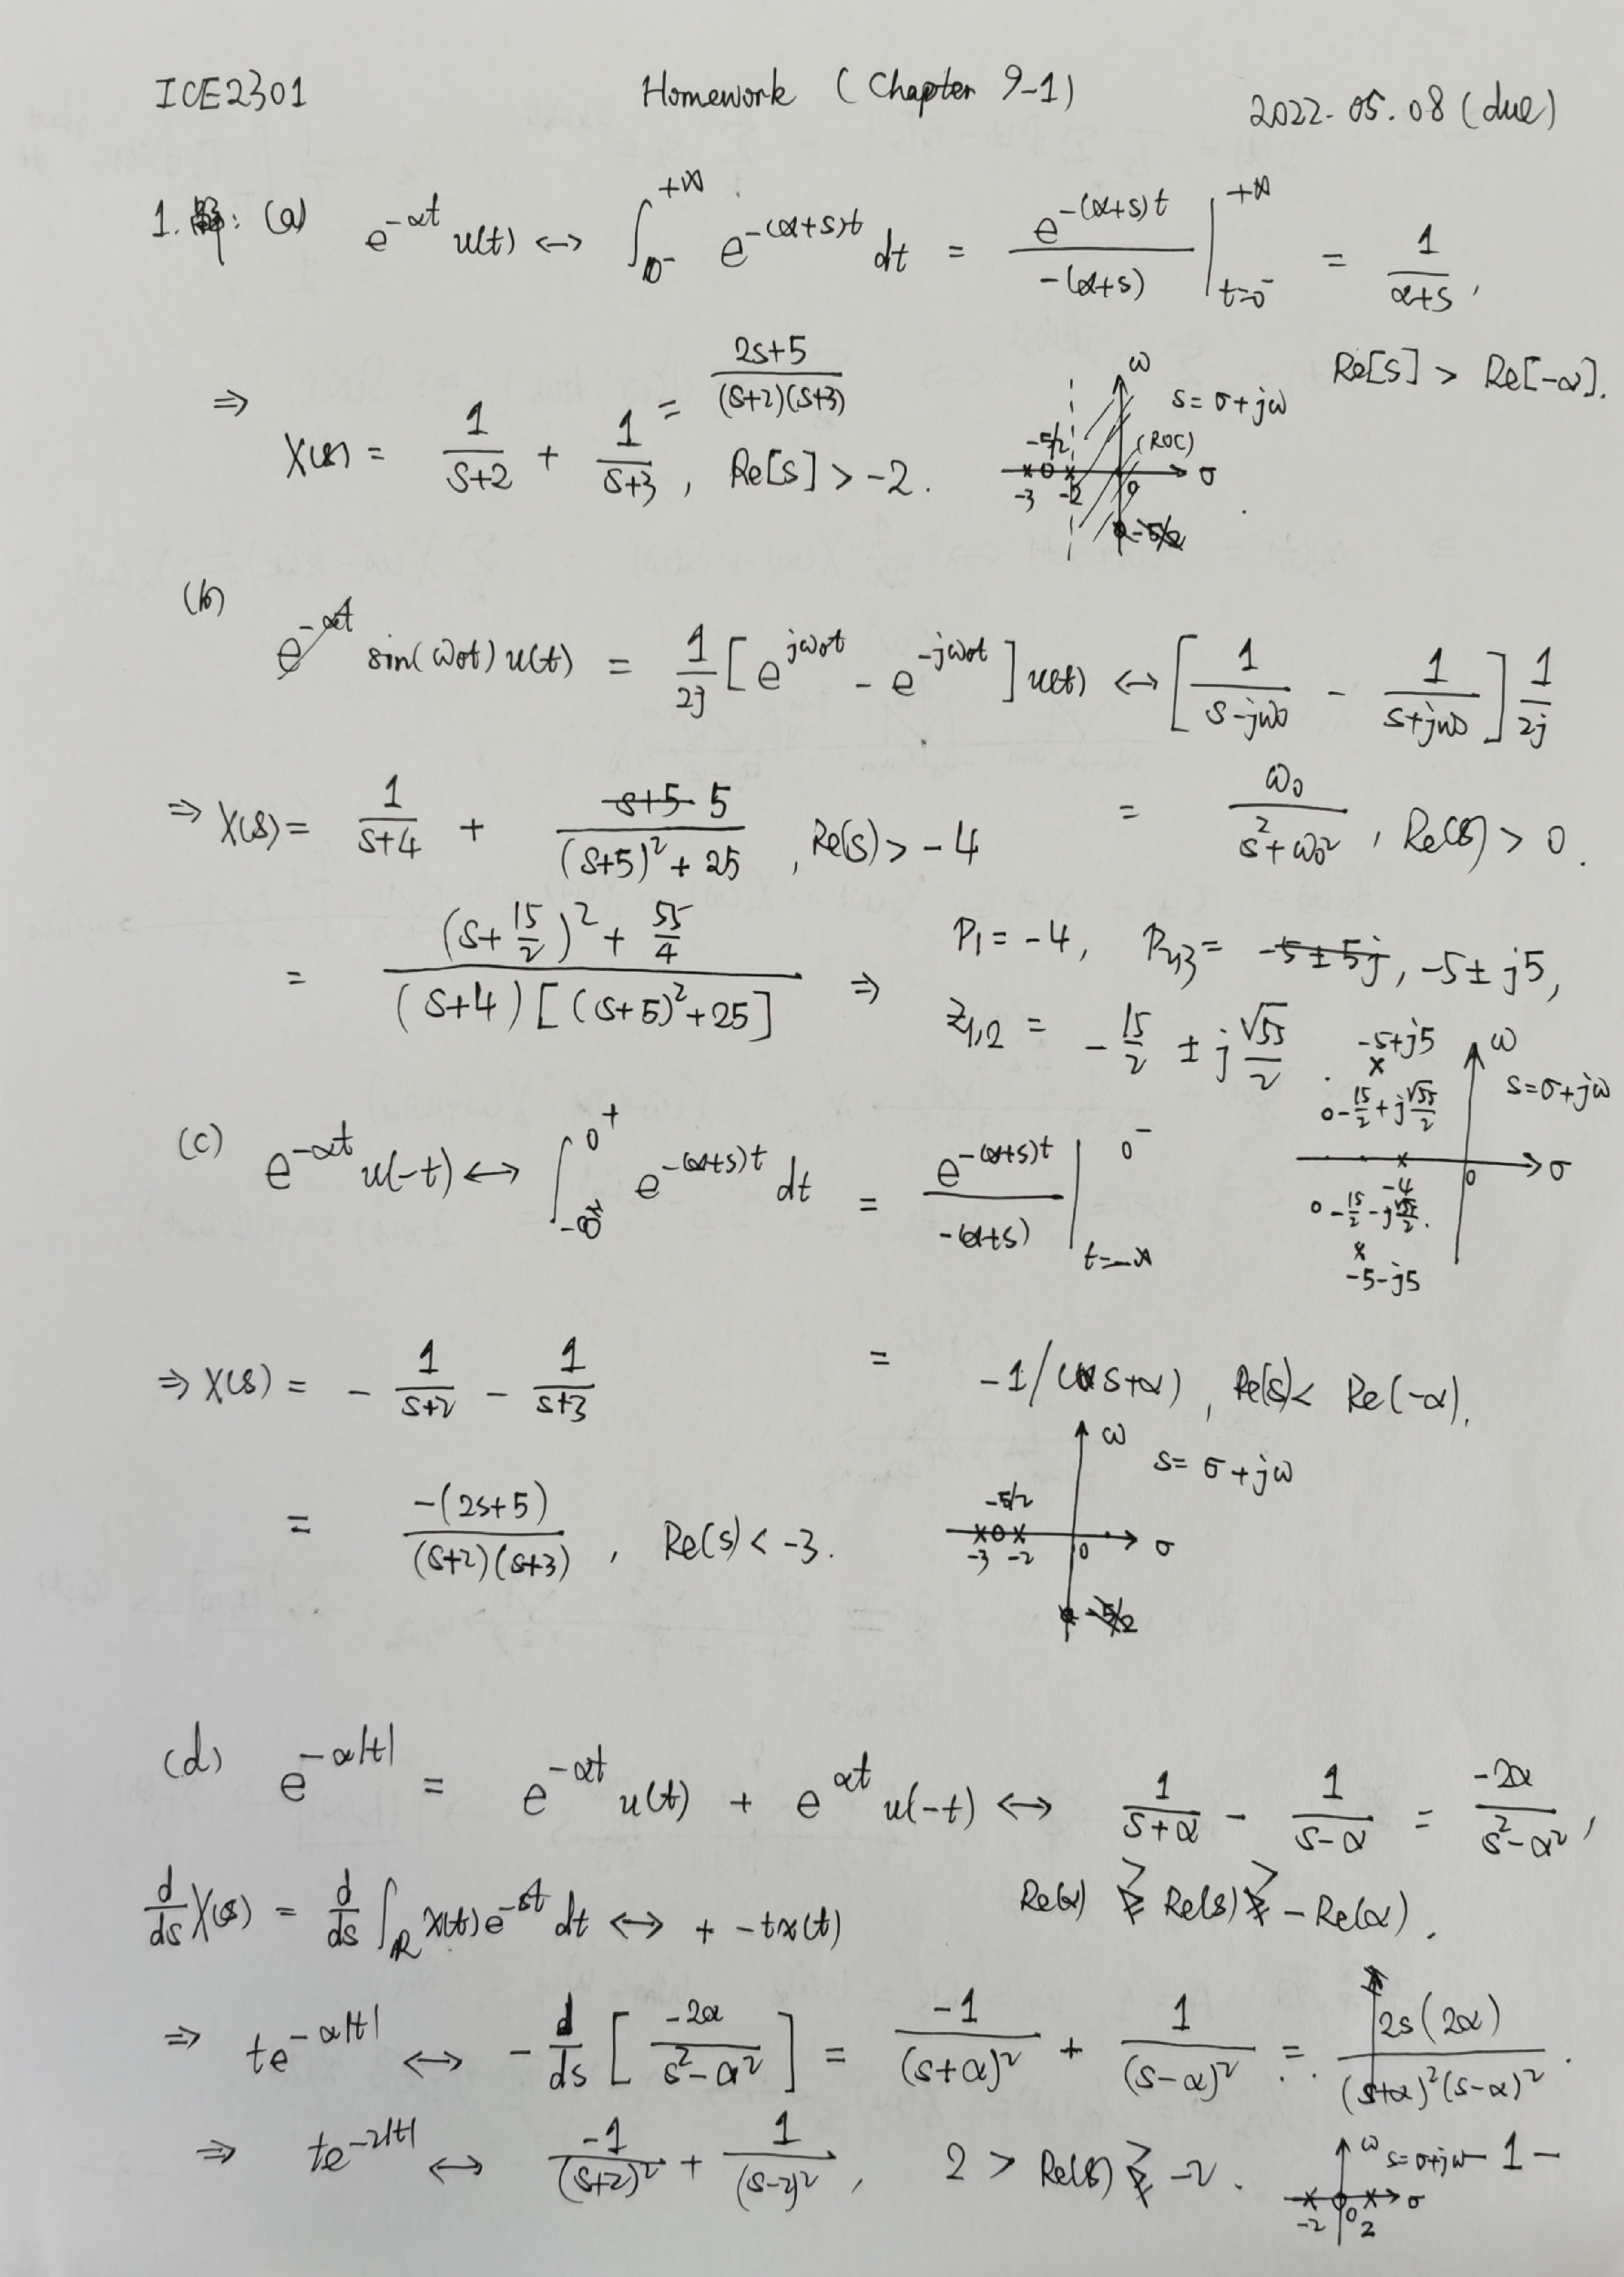 ICE2301 Homework (Chapter 9-1) 2022.05.08 (due)
1. 解: (a) e^{-αt} u(t) ↔ ∫_{0^-}^{+∞} e^{-(α+s)t} dt = \frac{e^{-(α+s)t}}{-(α+s)} |_{t=0^-}^{+∞} = \frac{1}{α+s},
Re[s] > Re[-α].
⇒ X(s) = \frac{1}{s+2} + \frac{1}{s+3} = \frac{2s+5}{(s+2)(s+3)}, Re[s] > -2.
ω s = σ+jω
-5/2 (ROC) σ
-3 -2 0
(b) sin(ω₀t) u(t) = \frac{1}{2j} [e^{jω₀t} - e^{-jω₀t}] u(t) ↔ [\frac{1}{s-jω₀} - \frac{1}{s+jω₀}] \frac{1}{2j}
= \frac{ω₀}{s²+ω₀²}, Re(s) > 0.
⇒ X(s) = \frac{1}{s+4} + \frac{5}{(s+5)²+25}, Re(s) > -4
= \frac{(s+\frac{15}{2})² + \frac{55}{4}}{(s+4)[(s+5)²+25]} ⇒ P₁ = -4, P₂,₃ = -5±j5,
Z₁,₂ = -\frac{15}{2} ± j\frac{√55}{2}.
-5+j5 ω
s=σ+jω
-\frac{15}{2}+j\frac{√55}{2}
-4 0 σ
-\frac{15}{2}-j\frac{√55}{2}.
-5-j5
(c) e^{-αt} u(-t) ↔ ∫_{-∞}^{0^+} e^{-(α+s)t} dt = \frac{e^{-(α+s)t}}{-(α+s)} |_{t=-∞}^{0^-}
= -1/(s+α), Re(s) < Re(-α).
⇒ X(s) = -\frac{1}{s+2} - \frac{1}{s+3}
= \frac{-(2s+5)}{(s+2)(s+3)}, Re(s) < -3.
ω s = σ+jω
-5/2
-3 -2 0 σ
(d) e^{-α|t|} = e^{-αt} u(t) + e^{αt} u(-t) ↔ \frac{1}{s+α} - \frac{1}{s-α} = \frac{-2α}{s²-α²},
Re(α) > Re(s) > -Re(α).
\frac{d}{ds} X(s) = \frac{d}{ds} ∫_R x(t)e^{-st} dt ↔ + -tx(t)
⇒ te^{-α|t|} ↔ -\frac{d}{ds} [\frac{-2α}{s²-α²}] = \frac{-1}{(s+α)²} + \frac{1}{(s-α)²} = \frac{2s(2α)}{(s+α)²(s-α)²}.
⇒ te^{-2|t|} ↔ \frac{-1}{(s+2)²} + \frac{1}{(s-2)²}, 2 > Re(s) > -2.
ω s=σ+jω
-2 0 2 σ
-1-